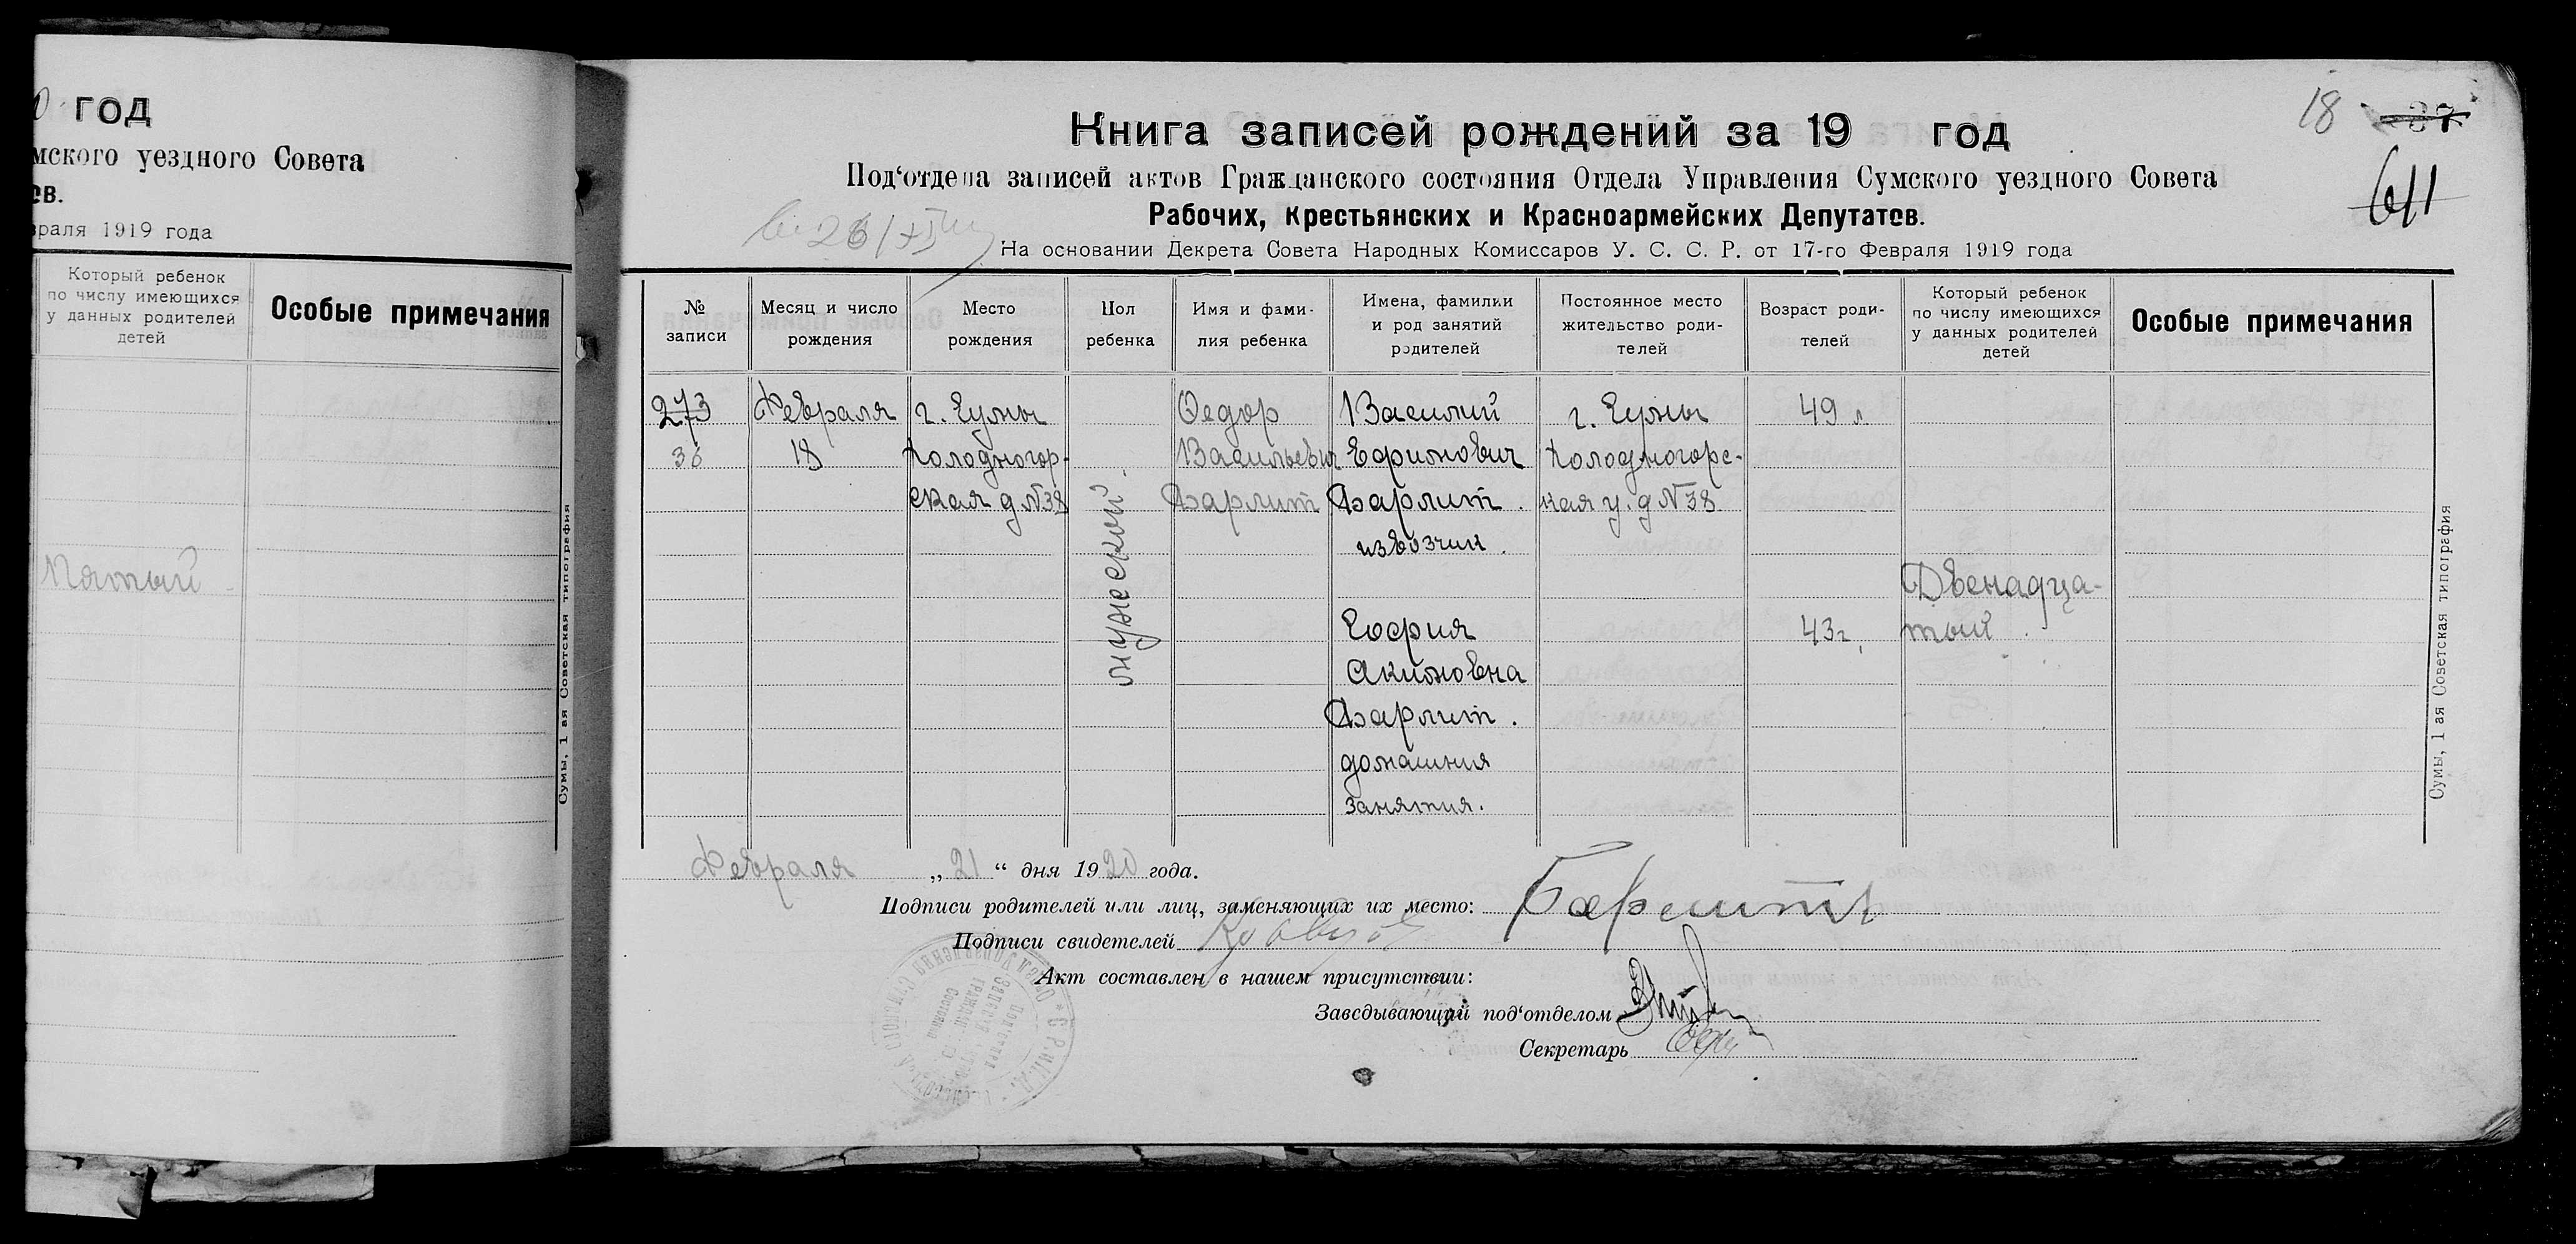 год
мского уездного Совета
ев.
враля 1919 года
Который ребенок
по числу имеющихся
у данных родителей
детей
Особые примечания
Пятый
Сумы, 1 ая Советская типография
18 37
611
Книга записей рождений за 19 год
Под‘отдела записей актов Гражданского состояния Отдела Управления Сумского уездного Совета
Рабочих, Крестьянских и Красноармейских Депутатов.
На основании Декрета Совета Народных Комиссаров У. С. С. Р. от 17-го Февраля 1919 года
№
записи
Месяц и число
рождения
Место
рождения
Пол
ребенка
Имя и фами-
лия ребенка
Имена, фамилии
и род занятий
родителей
Постоянное место
жительство роди-
телей
Возраст роди-
телей
Который ребенок
по числу имеющихся
у данных родителей
детей
Особые примечания
273
36
Февраля
18
г. Сумы
Холодногор-
ская д №38
мужеской.
Федор
Васильевич
Бармит
Василий
Ефимович
Бармит.
извозчик.
София
Акимовна
Бармит.
домашния
занятия.
г. Сумы
Холодногорс-
кая у. д №38
49 л
43 г.
Двенадца-
тый.
Сумы, 1 ая Советская типография
Февраля „21“ дня 1920 года.
Подписи родителей или лиц, заменяющих их место:
Подписи свидетелей
Акт составлен в нашем присутствии:
Заведывающий под‘отделом
Секретарь